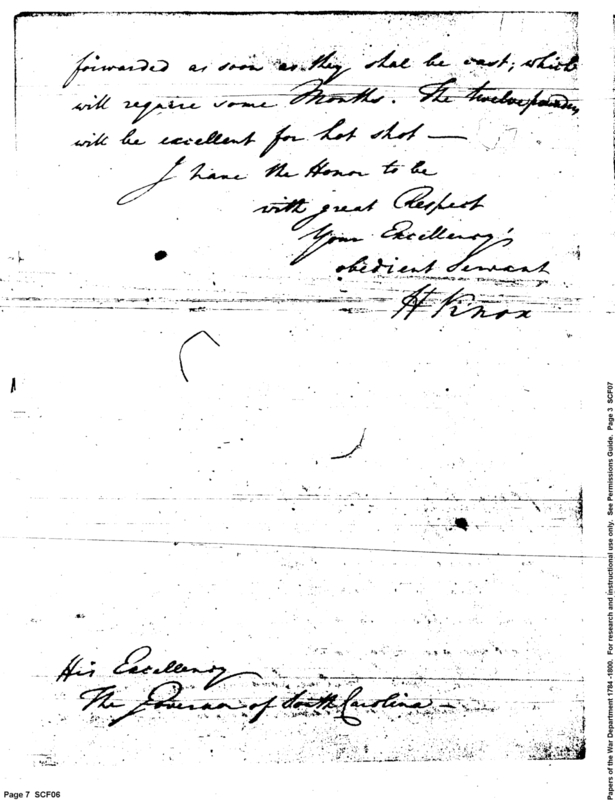 forwarded as soon as they shal be cast; which
will require some Months. The twelve pounders
will be excellent for hot shot —
I have the Honor to be
with great Respect
Your Excellency's
obedient Servant
H Knox
His Excellency
The Governor of South Carolina —
Page 7 SCF06
Papers of the War Department 1784 -1800. For research and instructional use only. See Permissions Guide. Page 3 SCF07